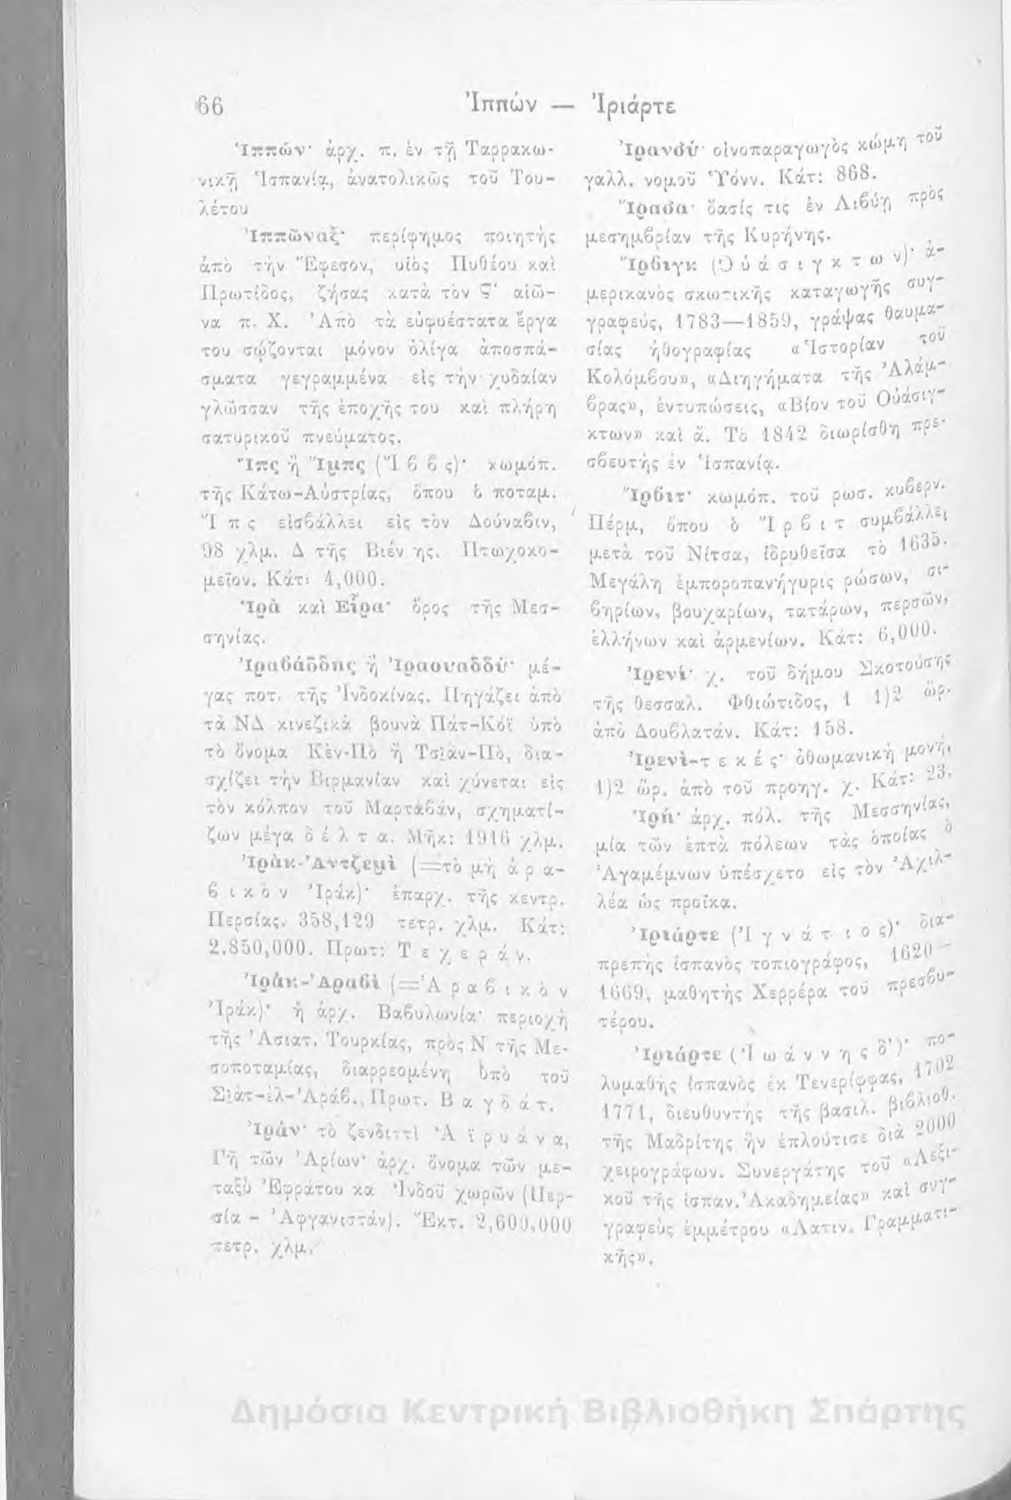 66
Ἱππών — Ἰριάρτε
Ἱππών· ἀρχ. π. ἐν τῇ Ταρρακω-
νικῇ Ἱσπανίᾳ, ἀνατολικῶς τοῦ Του-
λέτου
Ἱππῶναξ· περίφημος ποιητὴς
ἀπὸ τὴν Ἔφεσον, υἱὸς Πυθέου καὶ
Πρωτίδος, ζήσας κατὰ τὸν Ϛ' αἰῶ-
να π. Χ. Ἀπὸ τὰ εὐφυέστατα ἔργα
του σῴζονται μόνον ὀλίγα ἀποσπά-
σματα γεγραμμένα εἰς τὴν χυδαίαν
γλῶσσαν τῆς ἐποχῆς του καὶ πλήρη
σατυρικοῦ πνεύματος.
Ἴπς ἢ Ἴμπς (Ἴββς)· κωμόπ.
τῆς Κάτω-Αὐστρίας, ὅπου ὁ ποταμ.
Ἴπς εἰσβάλλει εἰς τὸν Δούναβιν,
98 χλμ. Δ τῆς Βιέννης. Πτωχοκο-
μεῖον. Κάτ: 4,000.
Ἱρὰ καὶ Εἶρα· ὄρος τῆς Μεσ-
σηνίας.
Ἰραβάδδης ἢ Ἰραουαδδύ· μέ-
γας ποτ. τῆς Ἰνδοκίνας. Πηγάζει ἀπὸ
τὰ ΝΔ κινεζικὰ βουνὰ Πάτ-Κόϊ ὑπὸ
τὸ ὄνομα Κὲν-Πὸ ἢ Τσιὰν-Πὸ, δια-
σχίζει τὴν Βιρμανίαν καὶ χύνεται εἰς
τὸν κόλπον τοῦ Μαρταβάν, σχηματί-
ζων μέγα δέλτα. Μῆκ: 1916 χλμ.
Ἰρὰκ-Ἀντζεμὶ (=τὸ μὴ ἀρα-
βικὸν Ἰράκ)· ἐπαρχ. τῆς κεντρ.
Περσίας. 358,129 τετρ. χλμ. Κάτ:
2.850,000. Πρωτ: Τεχεράν.
Ἰρὰκ-Ἀραβὶ (=Ἀραβικὸν
Ἰράκ)· ἡ ἀρχ. Βαβυλωνία· περιοχὴ
τῆς Ἀσιατ. Τουρκίας, πρὸς Ν τῆς Με-
σοποταμίας, διαρρεομένη ὑπὸ τοῦ
Σὶατ-ὲλ-Ἀράβ. Πρωτ. Βαγδάτ.
Ἰράν· τὸ ζενδιστὶ Ἀϊρυάνα,
Γῆ τῶν Ἀρίων· ἀρχ. ὄνομα τῶν με-
ταξὺ Ἐφράτου κα Ἰνδοῦ χωρῶν (Περ-
σία - Ἀφγανιστάν). Ἔκτ. 2,600,000
τετρ. χλμ.
Ἰρανσύ· οἰνοπαραγωγὸς κώμη τοῦ
γαλλ. νομοῦ Ὑόνν. Κάτ: 868.
Ἴρασα· ὄασίς τις ἐν Λιβύῃ πρὸς
μεσημβρίαν τῆς Κυρήνης.
Ἴρβιγκ (Οὐάσιγκτων)· ἀ-
μερικανὸς σκωτικῆς καταγωγῆς συγ-
γραφεύς, 1783—1859, γράψας θαυμα-
σίας ἠθογραφίας «Ἱστορίαν τοῦ
Κολόμβου», «Διηγήματα τῆς Ἀλάμ-
βρας», ἐντυπώσεις, «Βίον τοῦ Οὐάσιγ-
κτων» καὶ ἄ. Τὸ 1842 διωρίσθη πρε-
σβευτὴς ἐν Ἱσπανίᾳ.
Ἴρβιτ· κωμόπ. τοῦ ρωσ. κυβερν.
Πέρμ, ὅπου ὁ Ἴρβιτ συμβάλλει
μετὰ τοῦ Νίτσα, ἱδρυθεῖσα τὸ 1635.
Μεγάλη ἐμποροπανήγυρις ρώσων, σι-
βηρίων, βουχαρίων, τατάρων, περσῶν,
ἑλλήνων καὶ ἀρμενίων. Κάτ: 6,000.
Ἰρενί· χ. τοῦ δήμου Σκοτούσης
τῆς θεσσαλ. Φθιώτιδος, 1 1)2 ὥρ.
ἀπὸ Δουβλατάν. Κάτ: 158.
Ἰρενὶ-τεκές· ὀθωμανικὴ μονή,
1)2 ὥρ. ἀπὸ τοῦ προηγ. χ. Κάτ: 23.
Ἱρή· ἀρχ. πόλ. τῆς Μεσσηνίας,
μία τῶν ἑπτὰ πόλεων τὰς ὁποίας ὁ
Ἀγαμέμνων ὑπέσχετο εἰς τὸν Ἀχιλ-
λέα ὡς προῖκα.
Ἰριάρτε (Ἰγνάτιος)· δια-
πρεπὴς ἱσπανὸς τοπιογράφος, 1620—
1669, μαθητὴς Χερρέρα τοῦ πρεσβυ-
τέρου.
Ἰριάρτε (Ἰωάννης δ')· πο-
λυμαθὴς ἱσπανὸς ἐκ Τενερίφφας, 1702
1771, διευθυντὴς τῆς βασιλ. βιβλιοθ.
τῆς Μαδρίτης ἣν ἐπλούτισε διὰ 2000
χειρογράφων. Συνεργάτης τοῦ «Λεξι-
κοῦ τῆς ἱσπαν. Ἀκαδημείας» καὶ συγ-
γραφεὺς ἐμμέτρου «Λατιν. Γραμματι-
κῆς».
Δημόσια Κεντρική Βιβλιοθήκη Σπάρτης